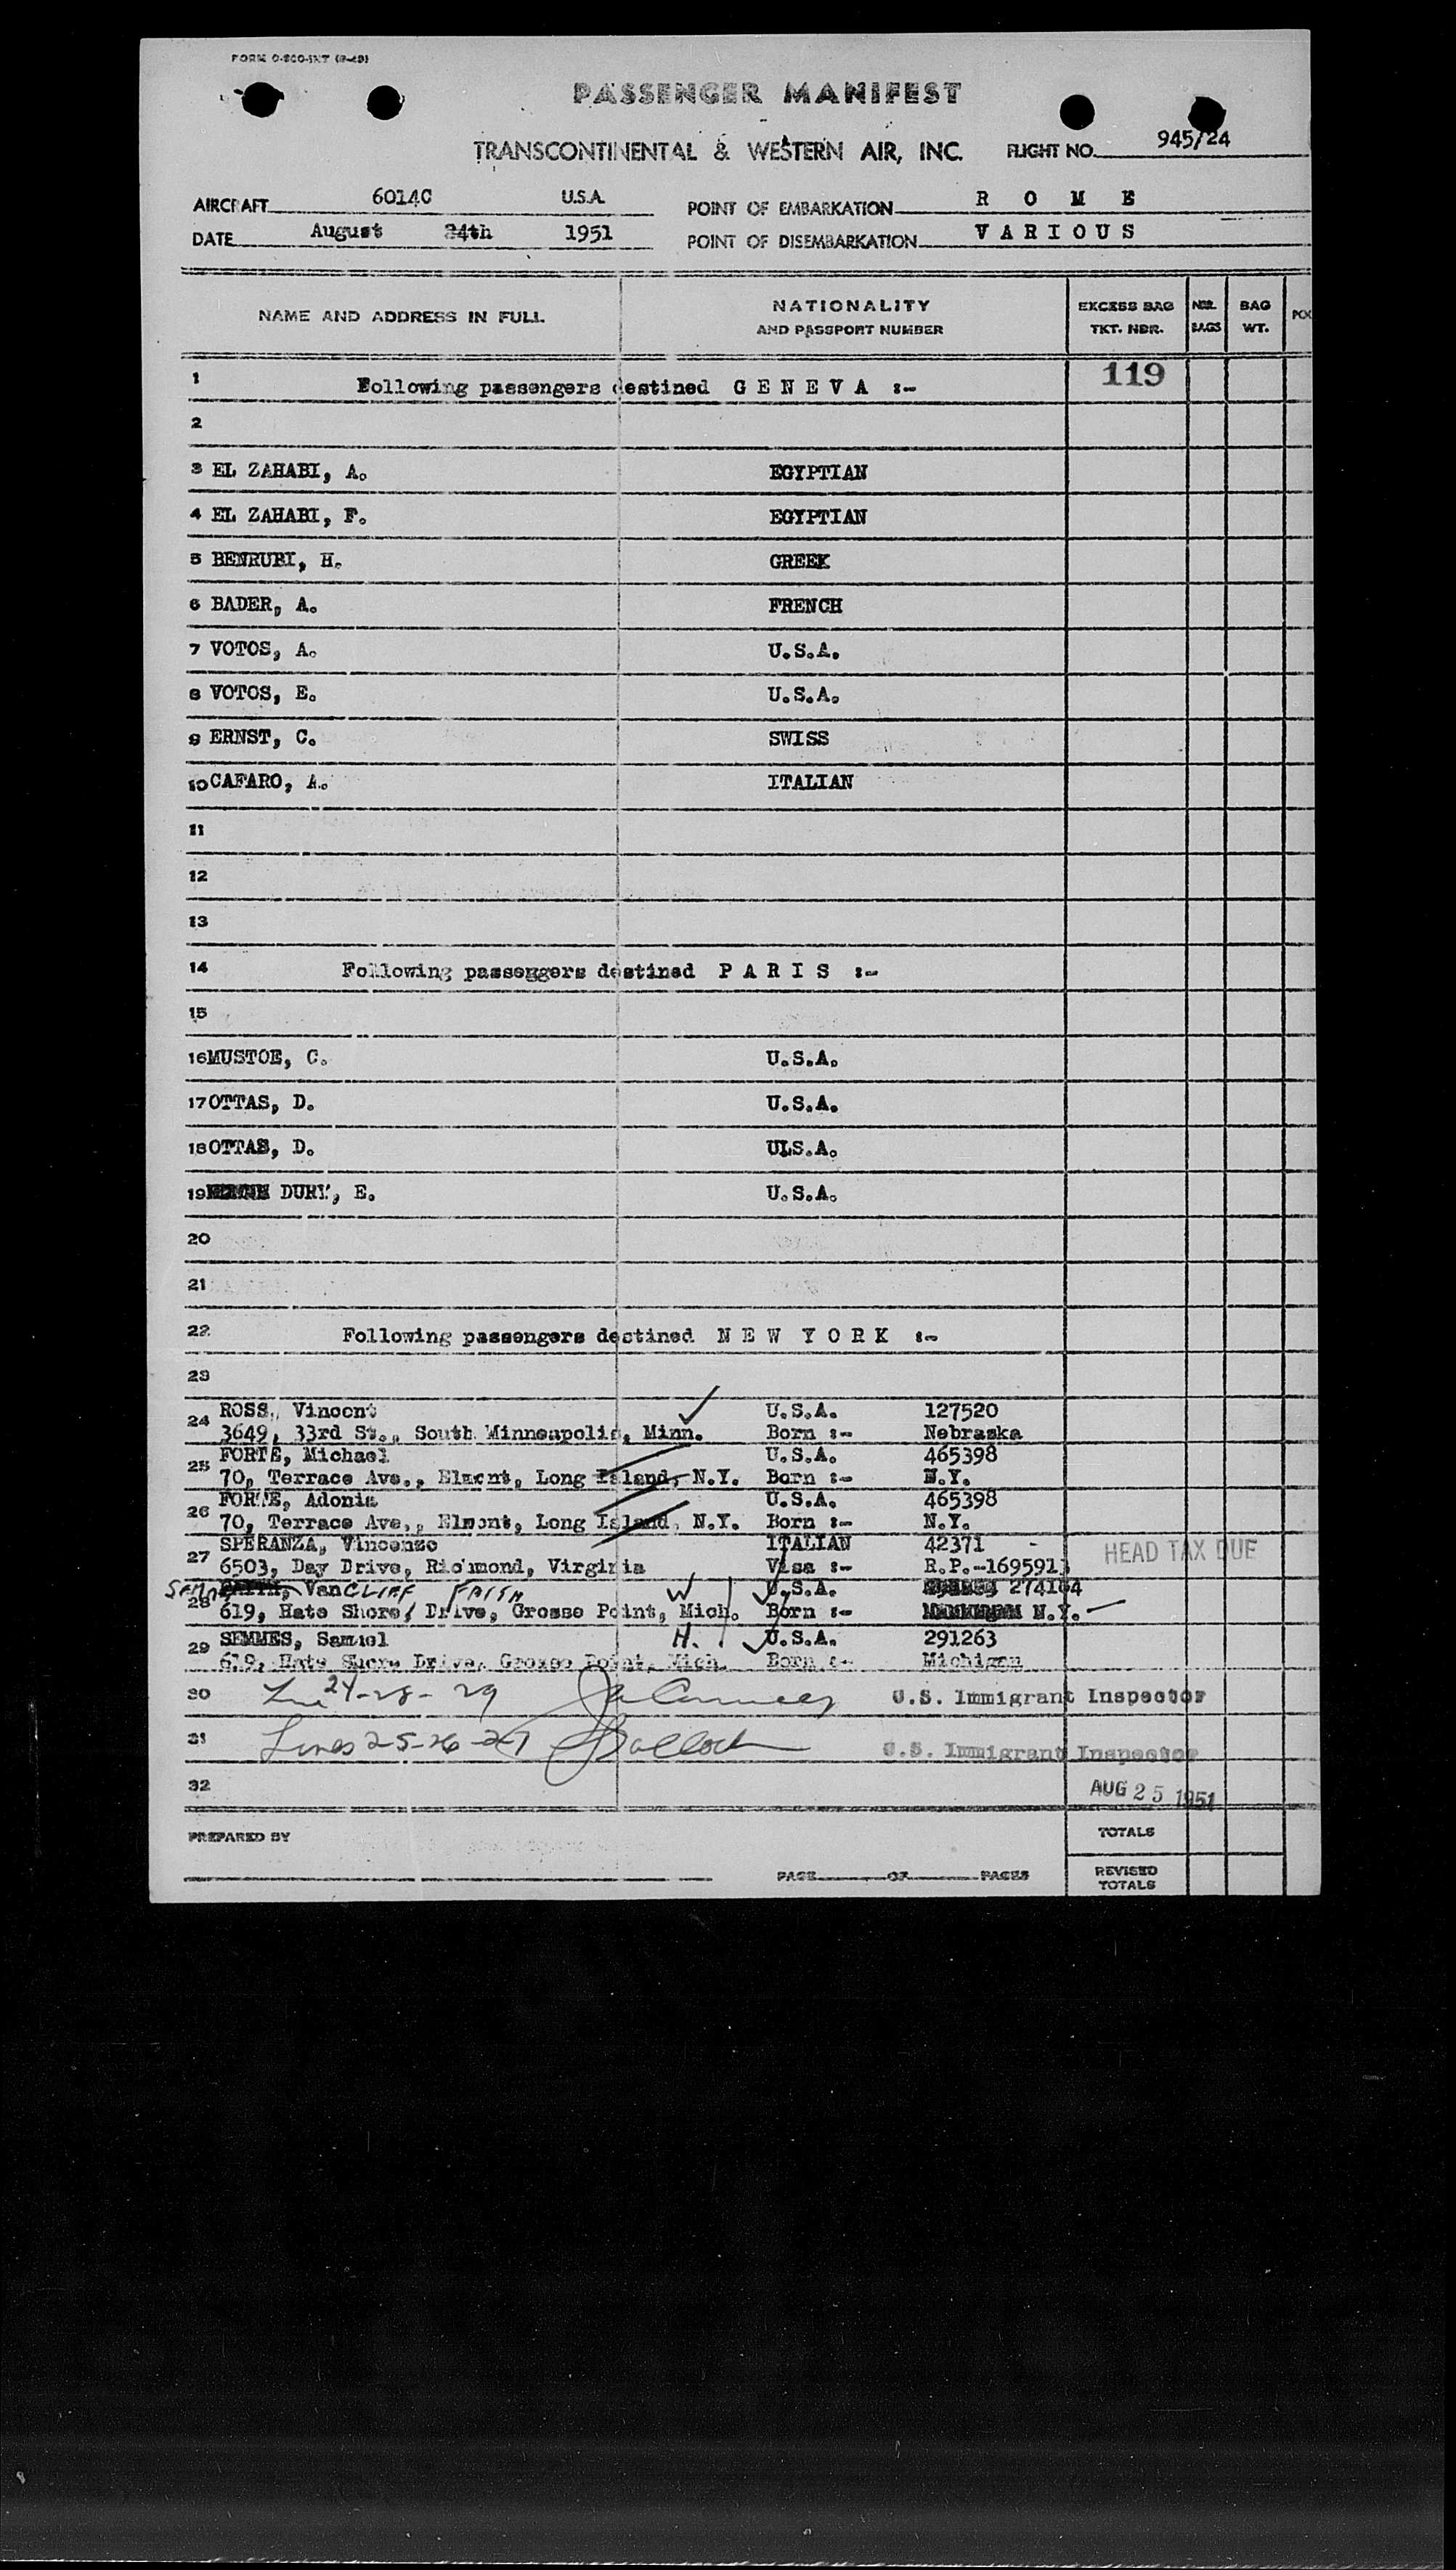 FORM O-800-INT (9-49)
PASSENGER MANIFEST
TRANSCONTINENTAL & WESTERN AIR, INC. FLIGHT NO. 945/24
AIRCRAFT 6014C U.S.A. POINT OF EMBARKATION R O M E
DATE August 24th 1951 POINT OF DISEMBARKATION V A R I O U S
NAME AND ADDRESS IN FULL NATIONALITY AND PASSPORT NUMBER EXCESS BAG TKT. NBR. NBR. BAGS BAG WT.
1 Following passengers destined G E N E V A :- 119
2
3 EL ZAHABI, A. EGYPTIAN
4 EL ZAHABI, F. EGYPTIAN
5 BENRUBI, H. GREEK
6 BADER, A. FRENCH
7 VOTOS, A. U.S.A.
8 VOTOS, E. U.S.A.
9 ERNST, C. SWISS
10 CAFARO, A. ITALIAN
11
12
13
14 Following passeggers destined P A R I S :-
15
16 MUSTOE, C. U.S.A.
17 OTTAS, D. U.S.A.
18 OTTAS, D. ULS.A.
19 DURY, E. U.S.A.
20
21
22 Following passengers destined N E W Y O R K :-
23
24 ROSS, Vincent U.S.A. 127520
3649, 33rd St., South Minneapolis, Minn. Born :- Nebraska
25 FORTE, Michael U.S.A. 465398
70, Terrace Ave., Elmont, Long Island, N.Y. Born :- N.Y.
26 FORTE, Adonia U.S.A. 465398
70, Terrace Ave., Elmont, Long Island, N.Y. Born :- N.Y.
27 SPERANZA, Vincenzo ITALIAN 42371 -
6503, Day Drive, Richmond, Virginia Visa :- R.P.-1695913 HEAD TAX DUE
28 VanCLIEF FAITH W U.S.A. 274164
619, Hate Shore, Drive, Grosse Point, Mich. Born :- N.Y.
29 SEMMES, Samuel H. U.S.A. 291263
619, Hate Shore Drive, Grosse Point, Mich. Born :- Michigan
30 Line 24-28-29 U.S. Immigrant Inspector
31 Lines 25-26-27 U.S. Immigrant Inspector
32 AUG 25 1951
PREPARED BY TOTALS
PAGE OF PAGES REVISED TOTALS